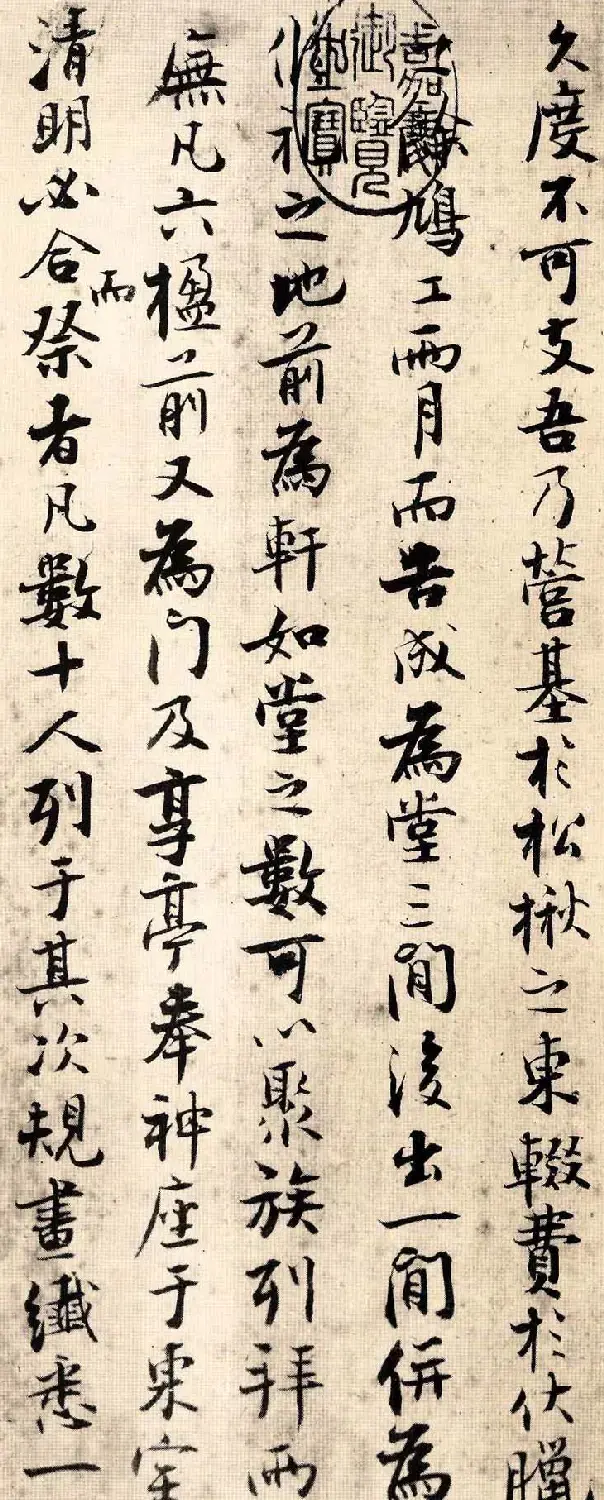 久度不可支吾乃營基於松楸之東輟費於伏臘
鳩工兩月而告成為堂三間後出一間併為
之地前為軒如堂之數可以聚族列拜兩
廡凡六楹前又為門及享亭奉神座于東室
清明必合而祭者凡數十人列于其次規畫纖悉一
嘉慶御覽之寶